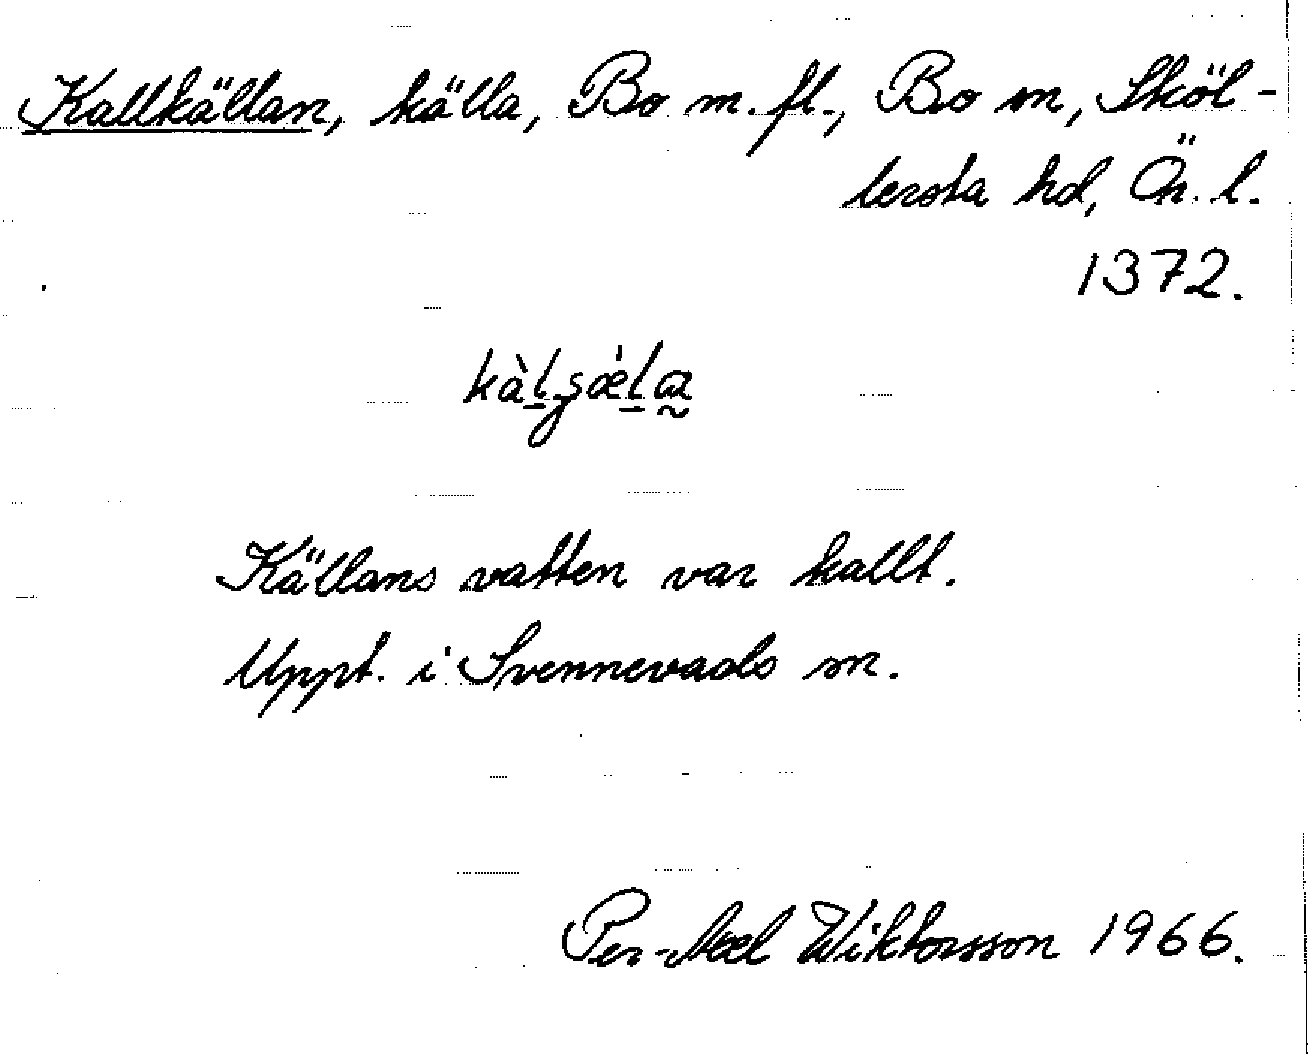 Kallkällan, källa, Bo m. fl., Bo sn, Sköl-
lersta hd, Ör. l.
1372.
Källans vatten var kallt.
Uppt. i Svennevads sn.
Per-Axel Wiktorsson 1966.